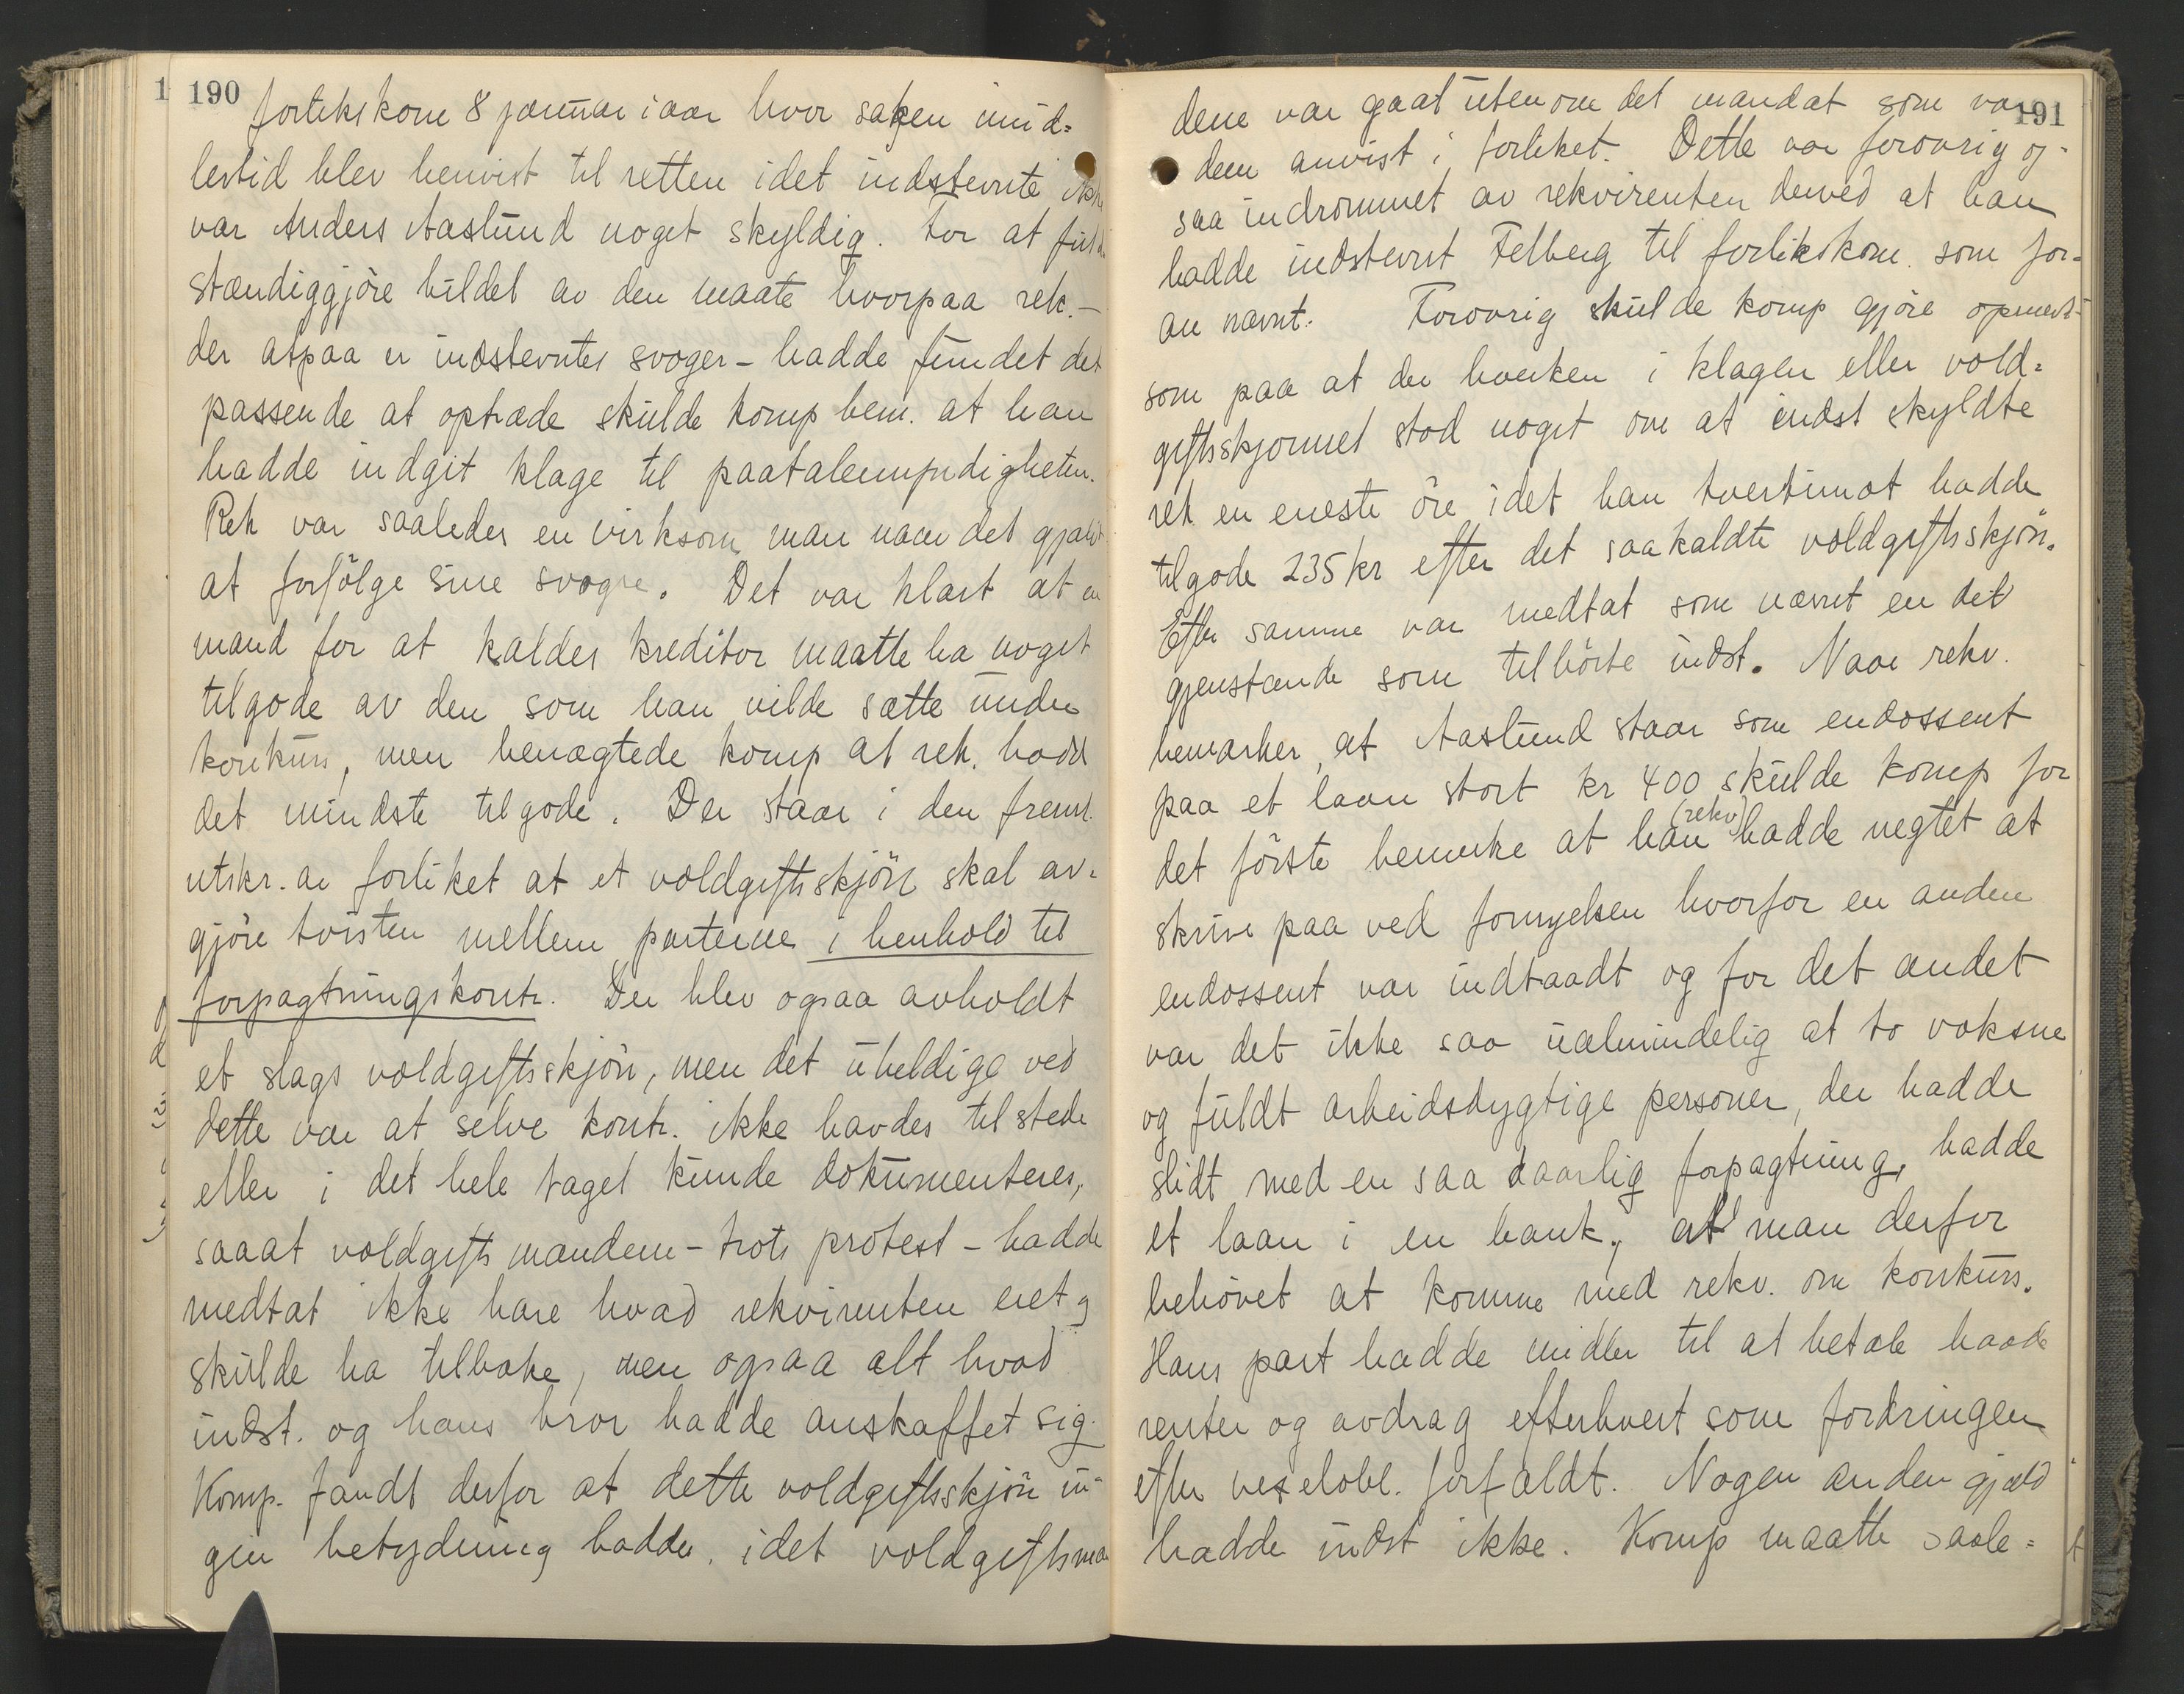 190
forlikskom 8 januar iaar hvor saken imid=
lertid blev henvist til retten idet indstevnte ikke
var Anders Aaslund noget skyldig. For at fuld
stændiggjöre bildet av den maate hvorpaa rek. -
der atpaa er indstevntes svoger - hadde fundet det
passende at optræde skulde komp bem. at han
hadde indgit klage til paatalemyndigheten.
Rek var saaledes en virksom man naar det gjaldt
at forfölge sine svogre. Det var klart at en
mand for at kaldes kreditor maatte ha noget
tilgode av den som han vilde sætte under
konkurs, men benægtede komp at rek. hadd
det mindste tilgode. Der staar i den freml.
utskr. av forliket at et voldgiftsskjön skal av=
gjöre tvisten mellem parterne i henhold til
forpagtningskontr. Der blev ogsaa avholdt
et slags voldgiftsskjön, men det uheldige ved
dette var at selve kontr. ikke havdes tilstede
eller i det hele taget kunde dokumenteres,
saaat voldgiftsmændene - trots protest - hadde
medtat ikke bare hvad rekvirenten eiet og
skulde ha tilbake, men ogsaa alt hvad
indst. og hans bror hadde anskaffet sig.
Komp. fandt derfor at dette voldgiftsskjön in-
gen betydning hadde, idet voldgiftsmæn
191
dene var gaat utenom det mandat som var
dem anvist i forliket. Dette var forövrig og-
saa indrömmet av rekvirenten derved at han
hadde indstevnt Felberg til forlikskom. som for=
an nævnt. Forövrig skulde komp gjöre opmerk-
som paa at der hverken i klagen eller vold=
giftsskjönnet stod noget om at indst skyldte
rek en eneste öre idet han tvertimot hadde
tilgode 235 kr efter det saakaldte voldgiftsskjön.
Efter samme var medtat som nævnt en del
gjenstande som tilhörte indst. Naar rekv.
bemærker, at Aaslund staar som endossent
paa et laan stort kr 400 skulde komp for
det förste bemerke at han (rekv) hadde negtet at
skrive paa ved fornyelsen hvorfor en anden
endossent var indtraadt og for det andet
var det ikke saa ualmindelig at to voksne
og fuldt arbeidsdygtige personer, der hadde
slidt med en saa daarlig forpagtning, hadde
et laan i en bank, at man derfor
behövet at komme med rekv. om konkurs.
Hans part hadde midler til at betale baade
renter og avdrag efterhvert som fordringen
efter vexelobl. forfaldt. Nogen anden gjæld
hadde indst ikke. Komp maatte saale=